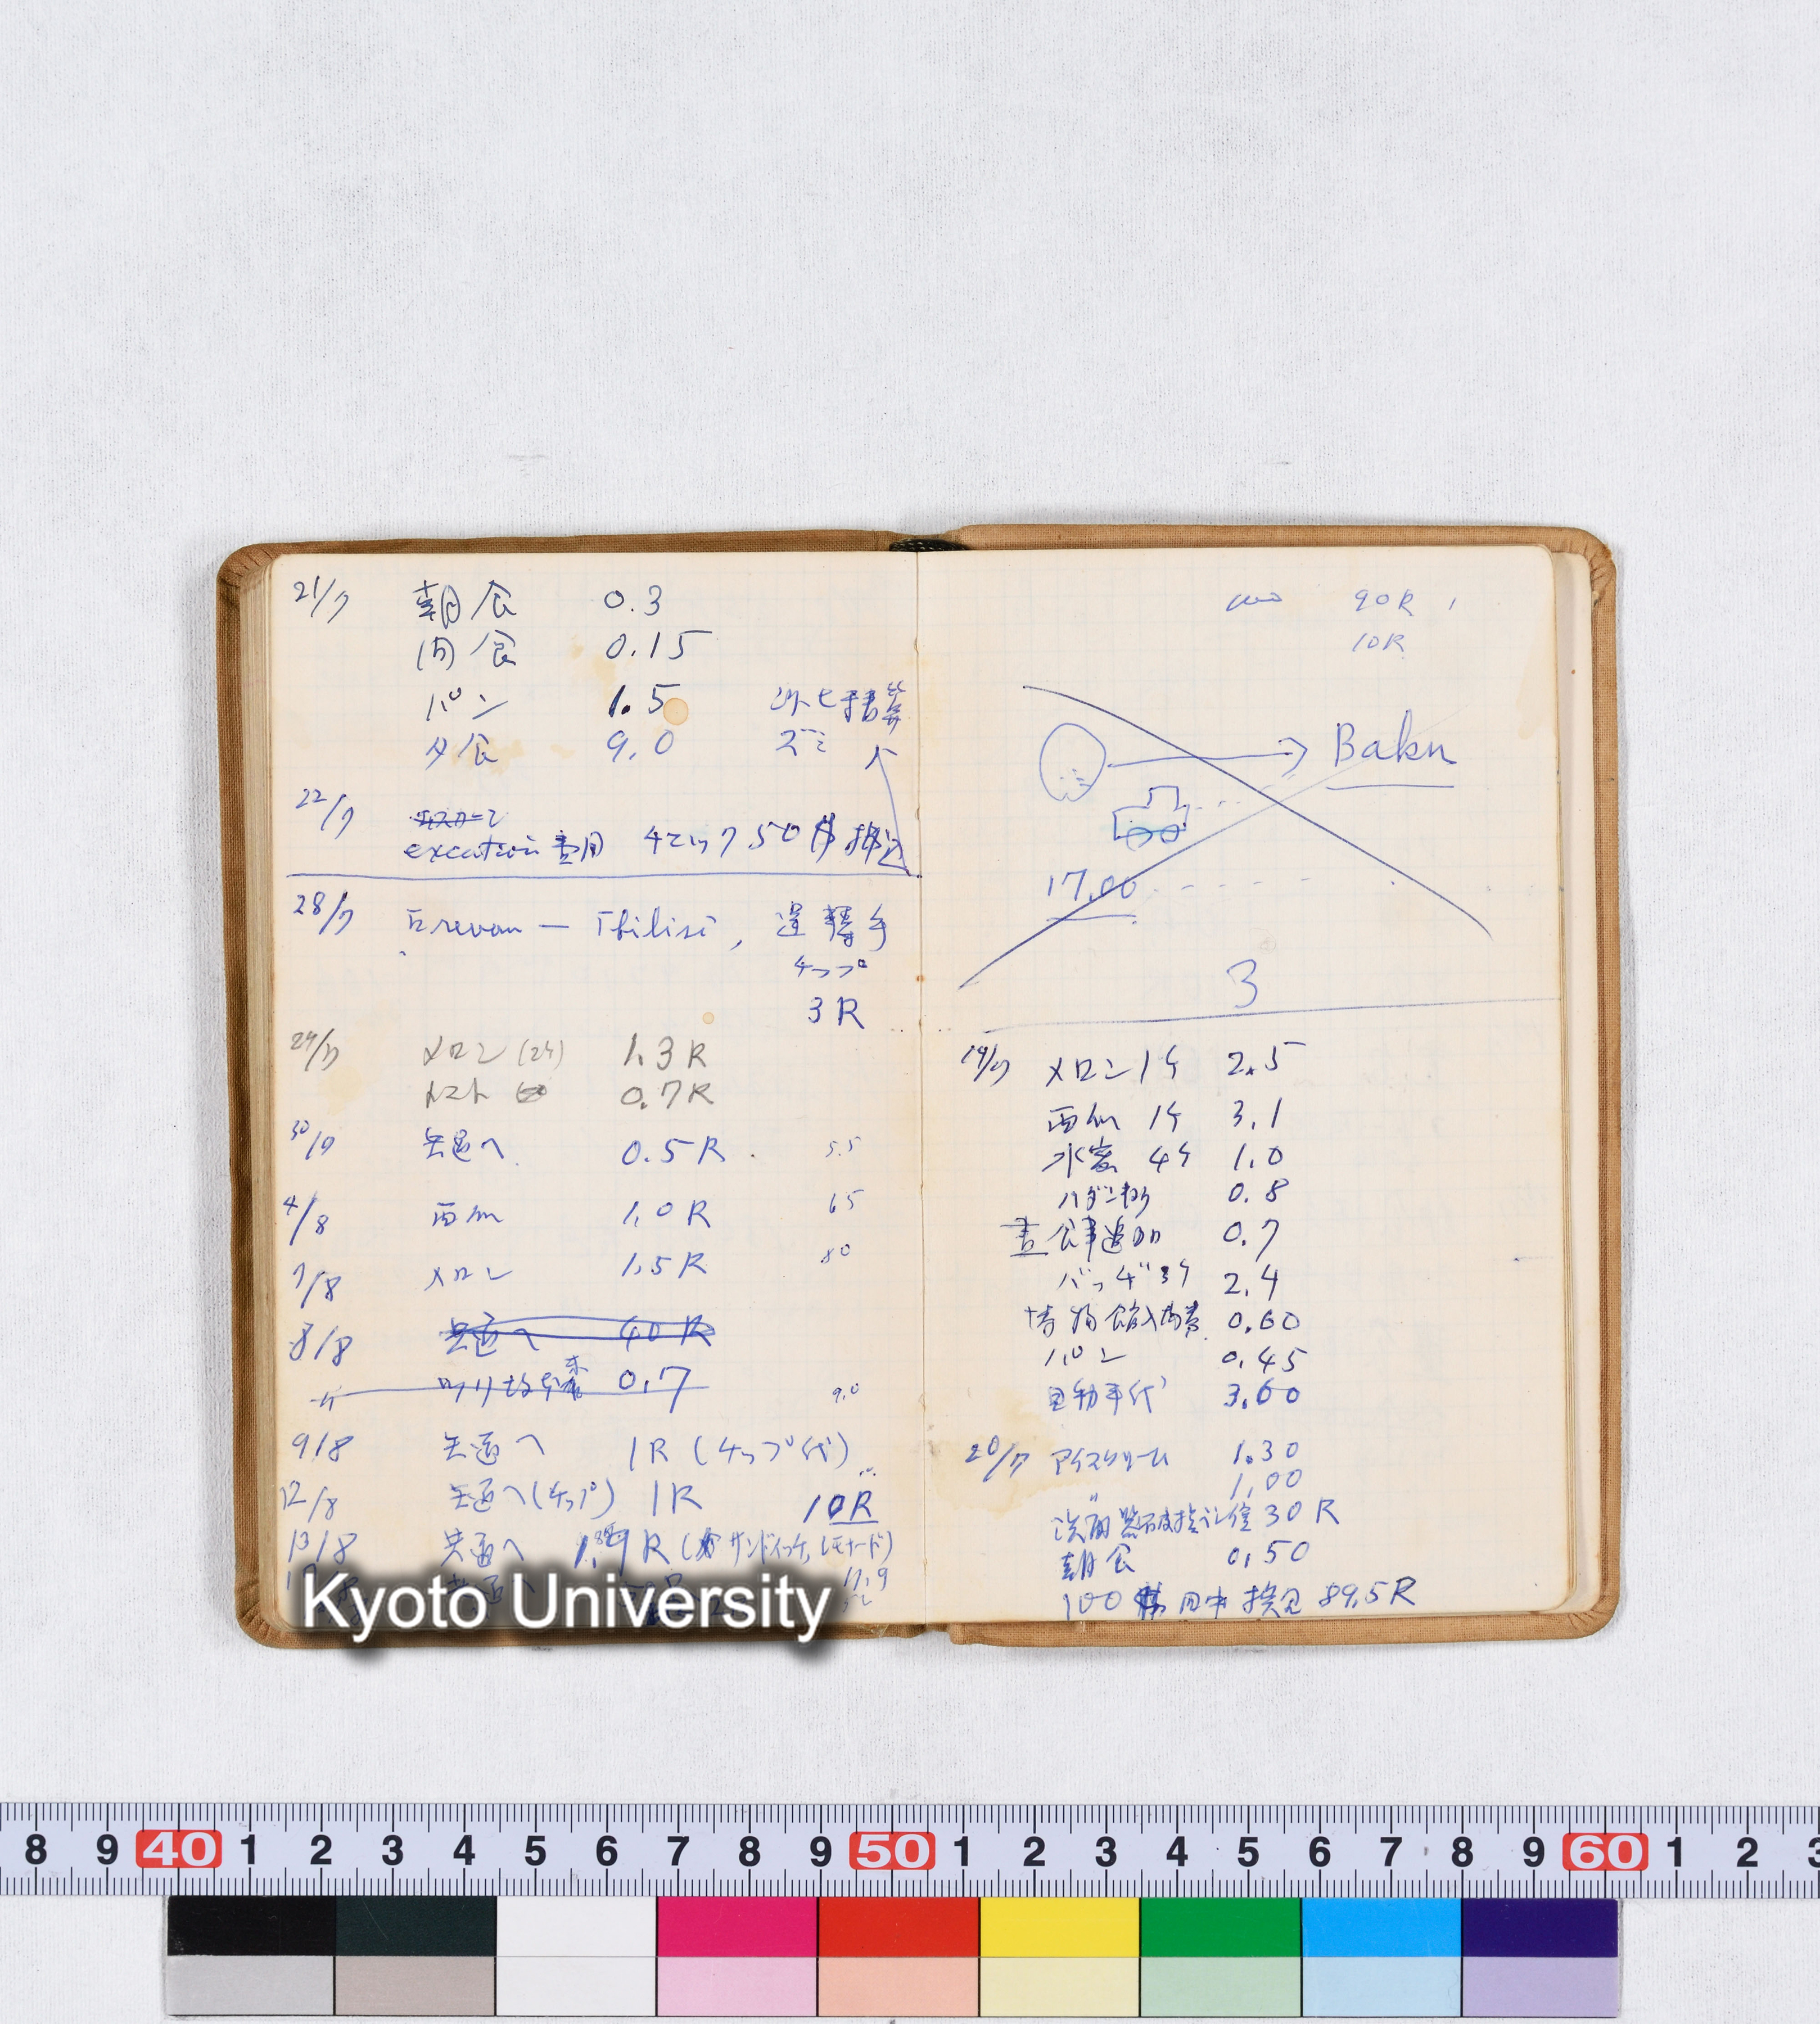 21/7 朝食 0.3
間食 0.15
パン 1.5
夕食 9.0 ズミ
22/7
excation 費用
28/7 Erevan — Tbilisi, 運轉手
チップ
3R
29/7 メロン (24) 1.3R
トマト 0.7R
30/7 共通へ 0.5R 5.5
4/8 西瓜 1.0R 65
7/8 メロン 1.5R 80
8/8 共通へ 40R
0.7 9.0
9/8 共通へ 1R (チップ代)
12/8 共通へ(チップ) 1R 10R
13/8 共通へ R (サンドイッチ, レモナード)
11.9
90R
10R
Baku
17.00
3
19/7 メロン1ケ 2.5
西瓜 1ケ 3.1
水蜜 4ケ 1.0
ハダン杏 0.8
昼食事追加 0.7
バッヂ3ケ 2.4
博物館入場券 0.60
パン 0.45
自動車代 3.60
20/7 アイスクリーム 1.30
〃 1.00
30R
朝食 0.50
100 89.5R
Kyoto University
8 9 40 1 2 3 4 5 6 7 8 9 50 1 2 3 4 5 6 7 8 9 60 1 2 3